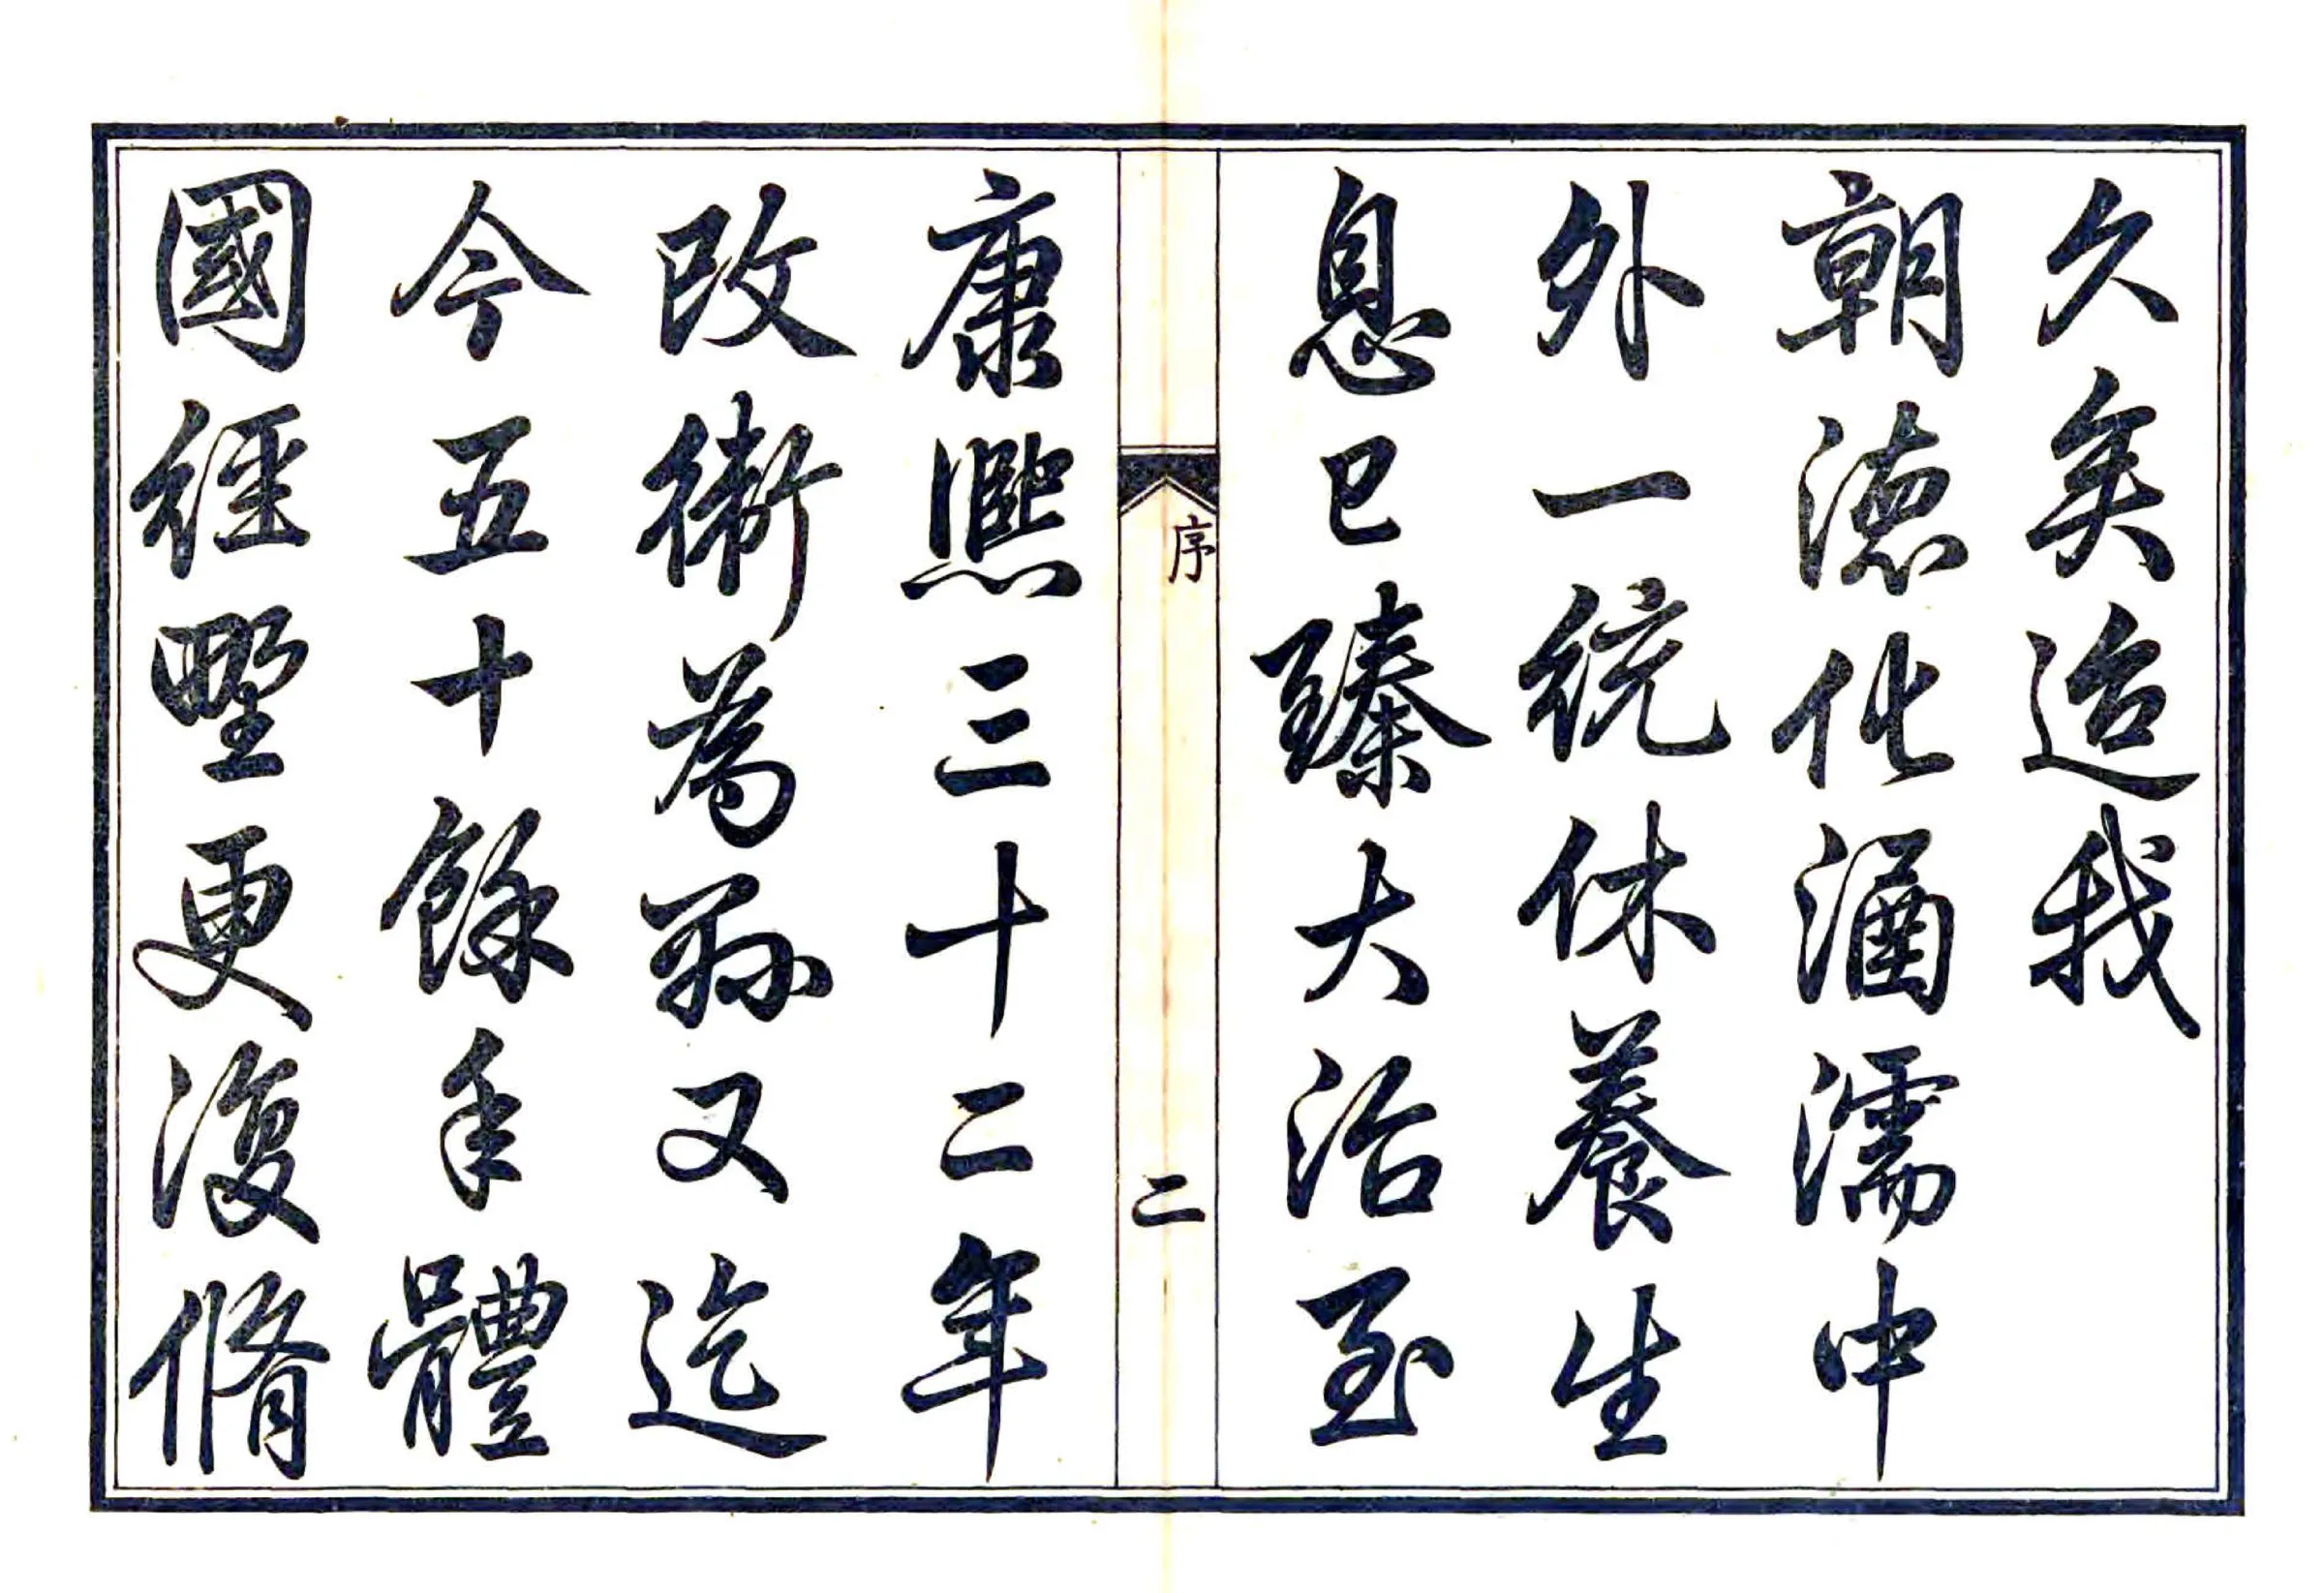 久矣迨我
朝德化涵濡中
外一統休養生
息已臻大治至
序
二
康熙三十二年
改衛為縣又迄
今五十餘年體
國經野更復脩